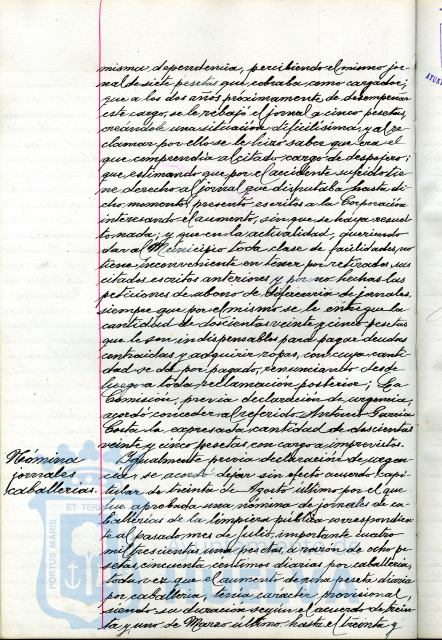 misma dependencia, percibiendo el mismo jor-
nal de siete pesetas que cobraba, como cargador;
que a los dos años próximamente de desempeñar
este cargo, se le rebajó el jornal a cinco pesetas,
creándole una situación dificilísima, y al re-
clamar por ello se le hizo saber que era el
que comprendía al citado cargo de despojero;
que estimando que por el accidente sufrido tie-
ne derecho al jornal que disfrutaba hasta di-
cho momento, presentó escritos a la Corporación
interesando el aumento, sin que se haya resuel-
to nada; y que en la actualidad, queriendo
dar al Municipio toda clase de facilidades, no
tiene inconveniente en tener por retirados sus
citados escritos anteriores y por no hechas las
peticiones de abono de diferencia de jornales,
siempre que por el mismo se le entregue la
cantidad de doscientas veinte y cinco pesetas
que le son indispensables para pagar deudas
contraidas y adquirir ropas, con cuya canti-
dad se da por pagado, renunciando desde
luego a toda reclamación posterior; La
Comisión, previa declaración de urgencia,
acordó conceder al referido Antonio García
Costa la expresada cantidad de doscientas
veinte y cinco pesetas, con cargo a imprevistos.
Nómina
jornales
caballerías.
Igualmente previa declaración de urgen-
cia, se acordó dejar sin efecto acuerdo capi-
tular de treinta de Agosto último por el que
fue aprobada una nómina de jornales de ca-
ballerías de la limpieza pública correspondien-
te al pasado mes julio, importante cuatro
mil trescientas una pesetas, a razón de ocho pe-
setas cincuenta céntimos diarias por caballería,
toda vez que el aumento de una peseta diaria
por caballería, tenía carácter provisional,
siendo su duración según el acuerdo de trein-
ta y uno de Marzo último, hasta el treinta y
PORTUS MARIS
ET TERRA